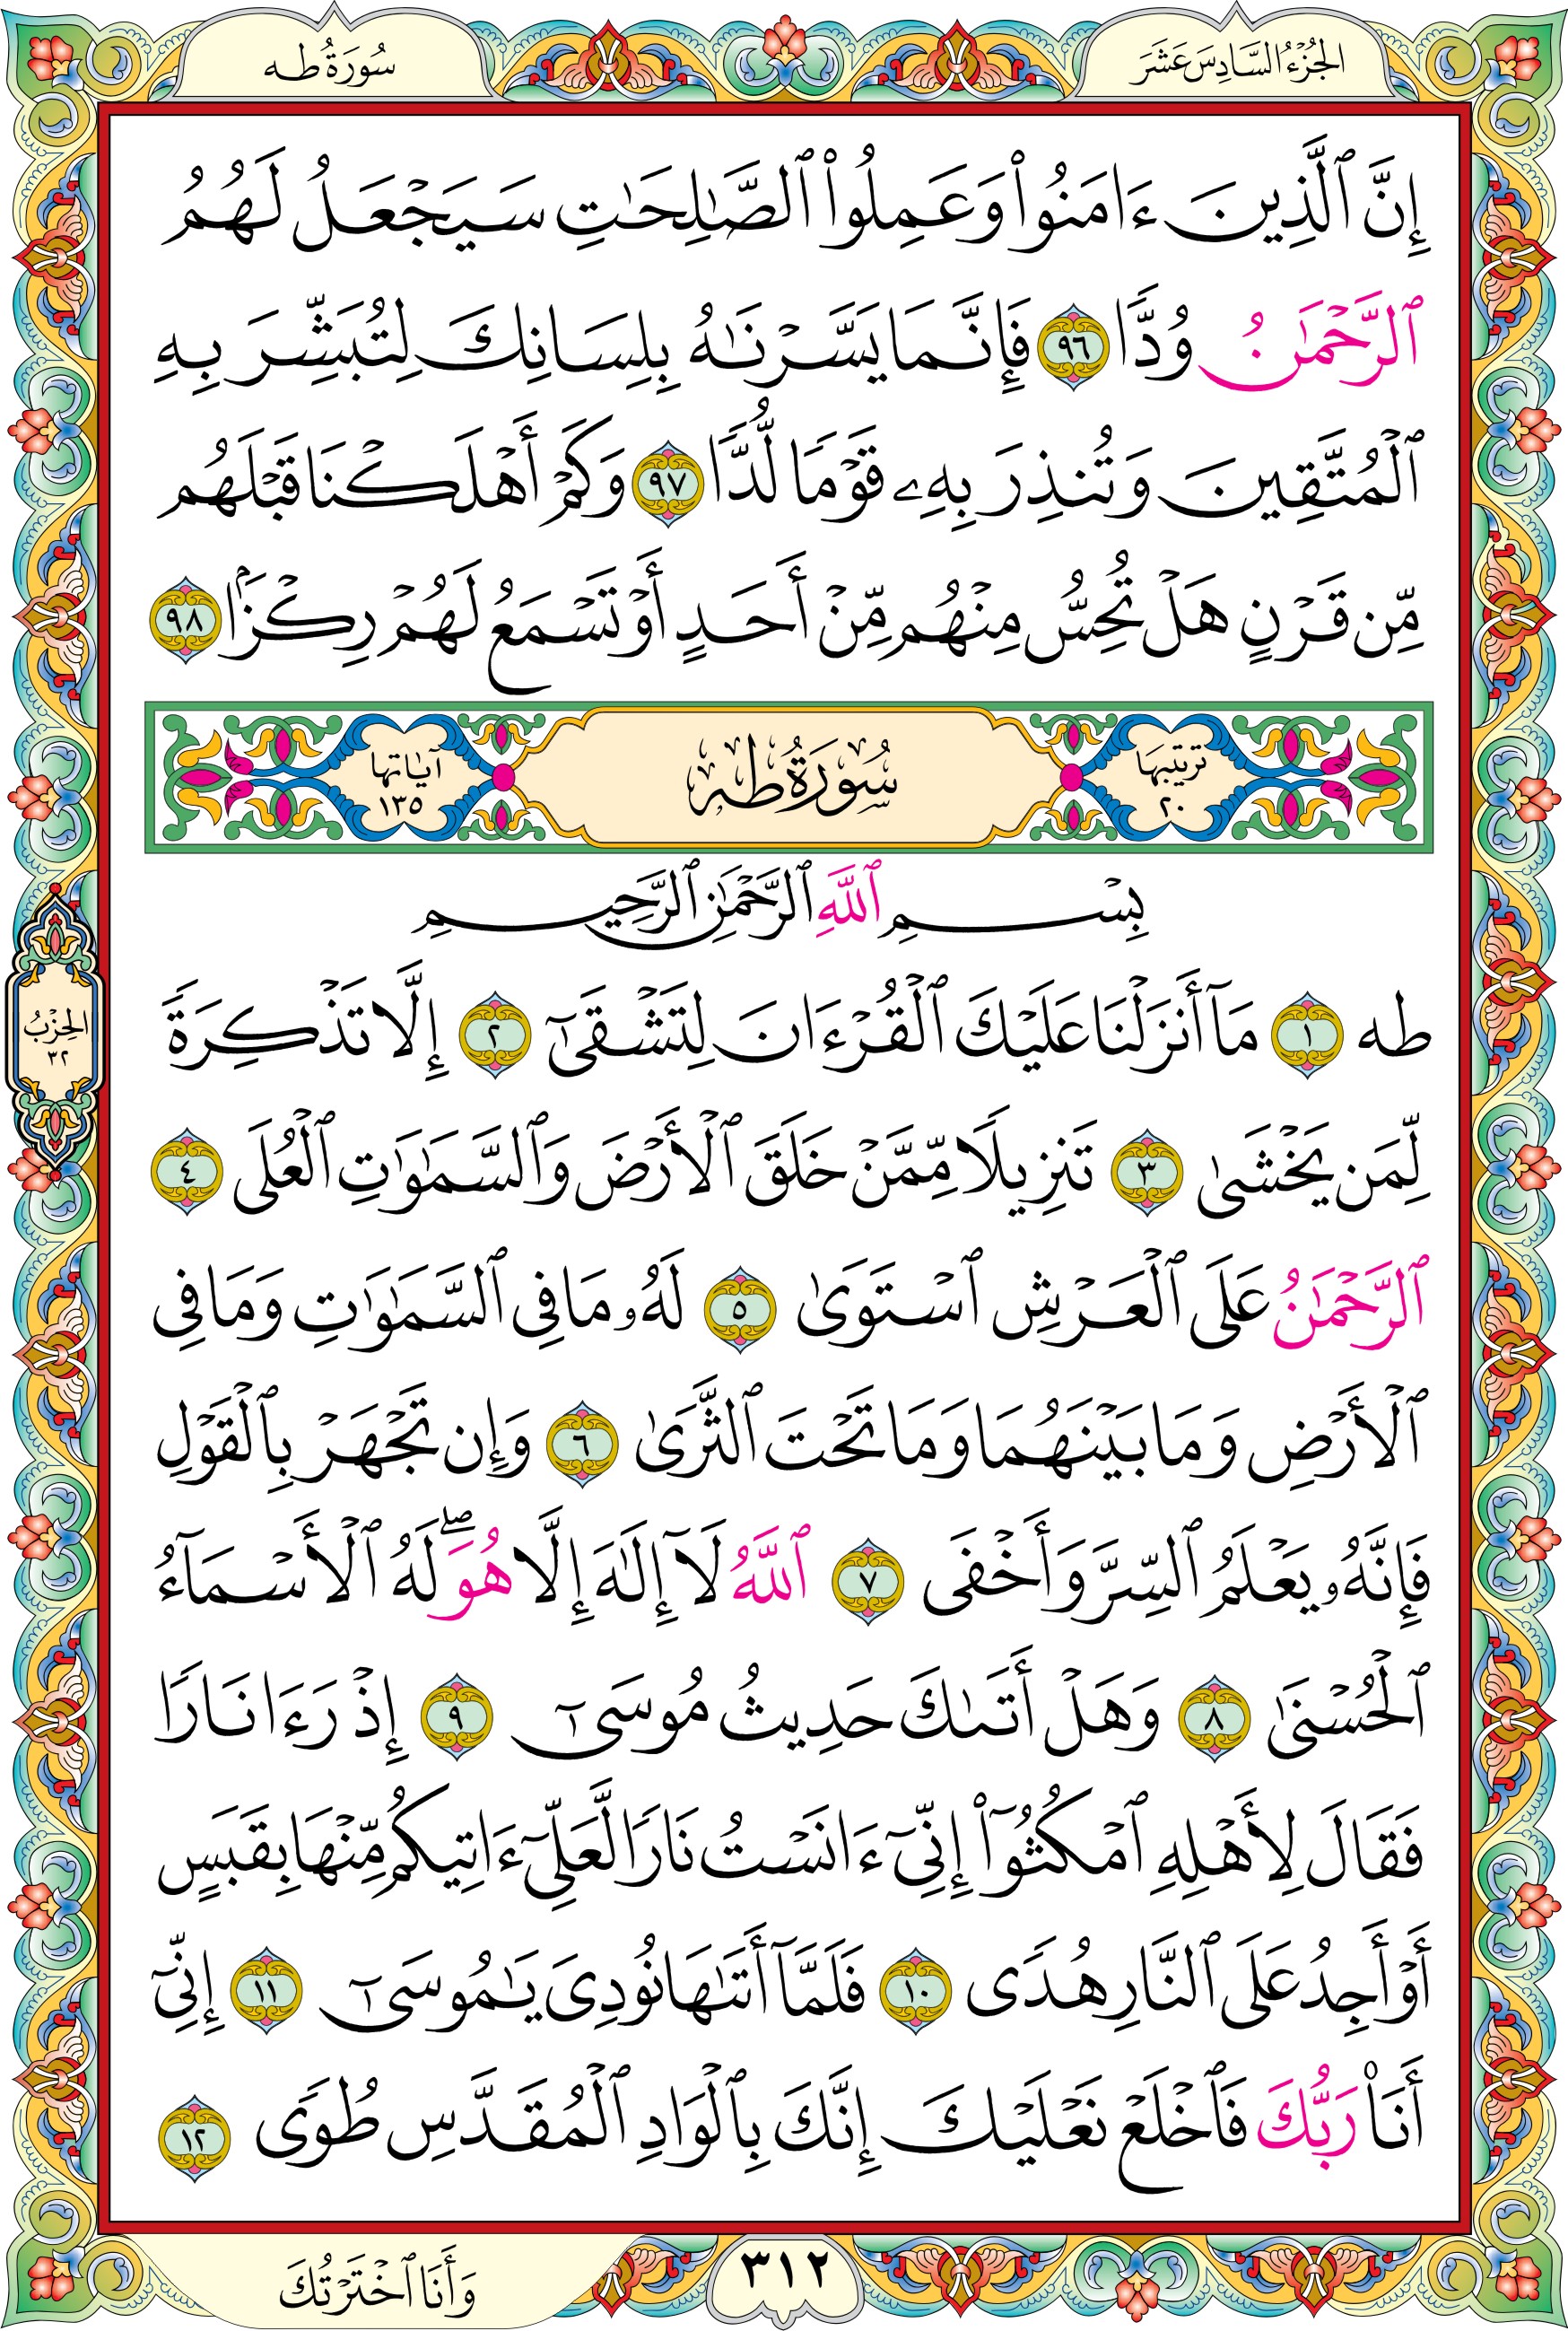 الجُزْءُ السَّادِسَ عَشَرَ
سُورَةُ طه
إِنَّ ٱلَّذِينَ ءَامَنُوا۟ وَعَمِلُوا۟ ٱلصَّـٰلِحَـٰتِ سَيَجْعَلُ لَهُمُ
ٱلرَّحْمَـٰنُ وُدًّا ٩٦ فَإِنَّمَا يَسَّرْنَـٰهُ بِلِسَانِكَ لِتُبَشِّرَ بِهِ
ٱلْمُتَّقِينَ وَتُنذِرَ بِهِۦ قَوْمًا لُّدًّا ٩٧ وَكَمْ أَهْلَكْنَا قَبْلَهُم
مِّن قَرْنٍ هَلْ تُحِسُّ مِنْهُم مِّنْ أَحَدٍ أَوْ تَسْمَعُ لَهُمْ رِكْزًۢا ٩٨
ترتيبها ٢٠
سُورَةُ طه
آياتها ١٣٥
بِسْمِ ٱللَّهِ ٱلرَّحْمَـٰنِ ٱلرَّحِيمِ
طه ١ مَآ أَنزَلْنَا عَلَيْكَ ٱلْقُرْءَانَ لِتَشْقَىٰٓ ٢ إِلَّا تَذْكِرَةً
لِّمَن يَخْشَىٰ ٣ تَنزِيلًا مِّمَّنْ خَلَقَ ٱلْأَرْضَ وَٱلسَّمَـٰوَٰتِ ٱلْعُلَى ٤
ٱلرَّحْمَـٰنُ عَلَى ٱلْعَرْشِ ٱسْتَوَىٰ ٥ لَهُۥ مَا فِى ٱلسَّمَـٰوَٰتِ وَمَا فِى
ٱلْأَرْضِ وَمَا بَيْنَهُمَا وَمَا تَحْتَ ٱلثَّرَىٰ ٦ وَإِن تَجْهَرْ بِٱلْقَوْلِ
فَإِنَّهُۥ يَعْلَمُ ٱلسِّرَّ وَأَخْفَى ٧ ٱللَّهُ لَآ إِلَـٰهَ إِلَّا هُوَ ۖ لَهُ ٱلْأَسْمَآءُ
ٱلْحُسْنَىٰ ٨ وَهَلْ أَتَىٰكَ حَدِيثُ مُوسَىٰٓ ٩ إِذْ رَءَا نَارًا
فَقَالَ لِأَهْلِهِ ٱمْكُثُوٓا۟ إِنِّىٓ ءَانَسْتُ نَارًا لَّعَلِّىٓ ءَاتِيكُم مِّنْهَا بِقَبَسٍ
أَوْ أَجِدُ عَلَى ٱلنَّارِ هُدًى ١٠ فَلَمَّآ أَتَىٰهَا نُودِىَ يَـٰمُوسَىٰٓ ١١ إِنِّىٓ
أَنَا۠ رَبُّكَ فَٱخْلَعْ نَعْلَيْكَ إِنَّكَ بِٱلْوَادِ ٱلْمُقَدَّسِ طُوًى ١٢
الحِزْبُ
٣٢
٣١٢
وَأَنَا ٱخْتَرْتُكَ